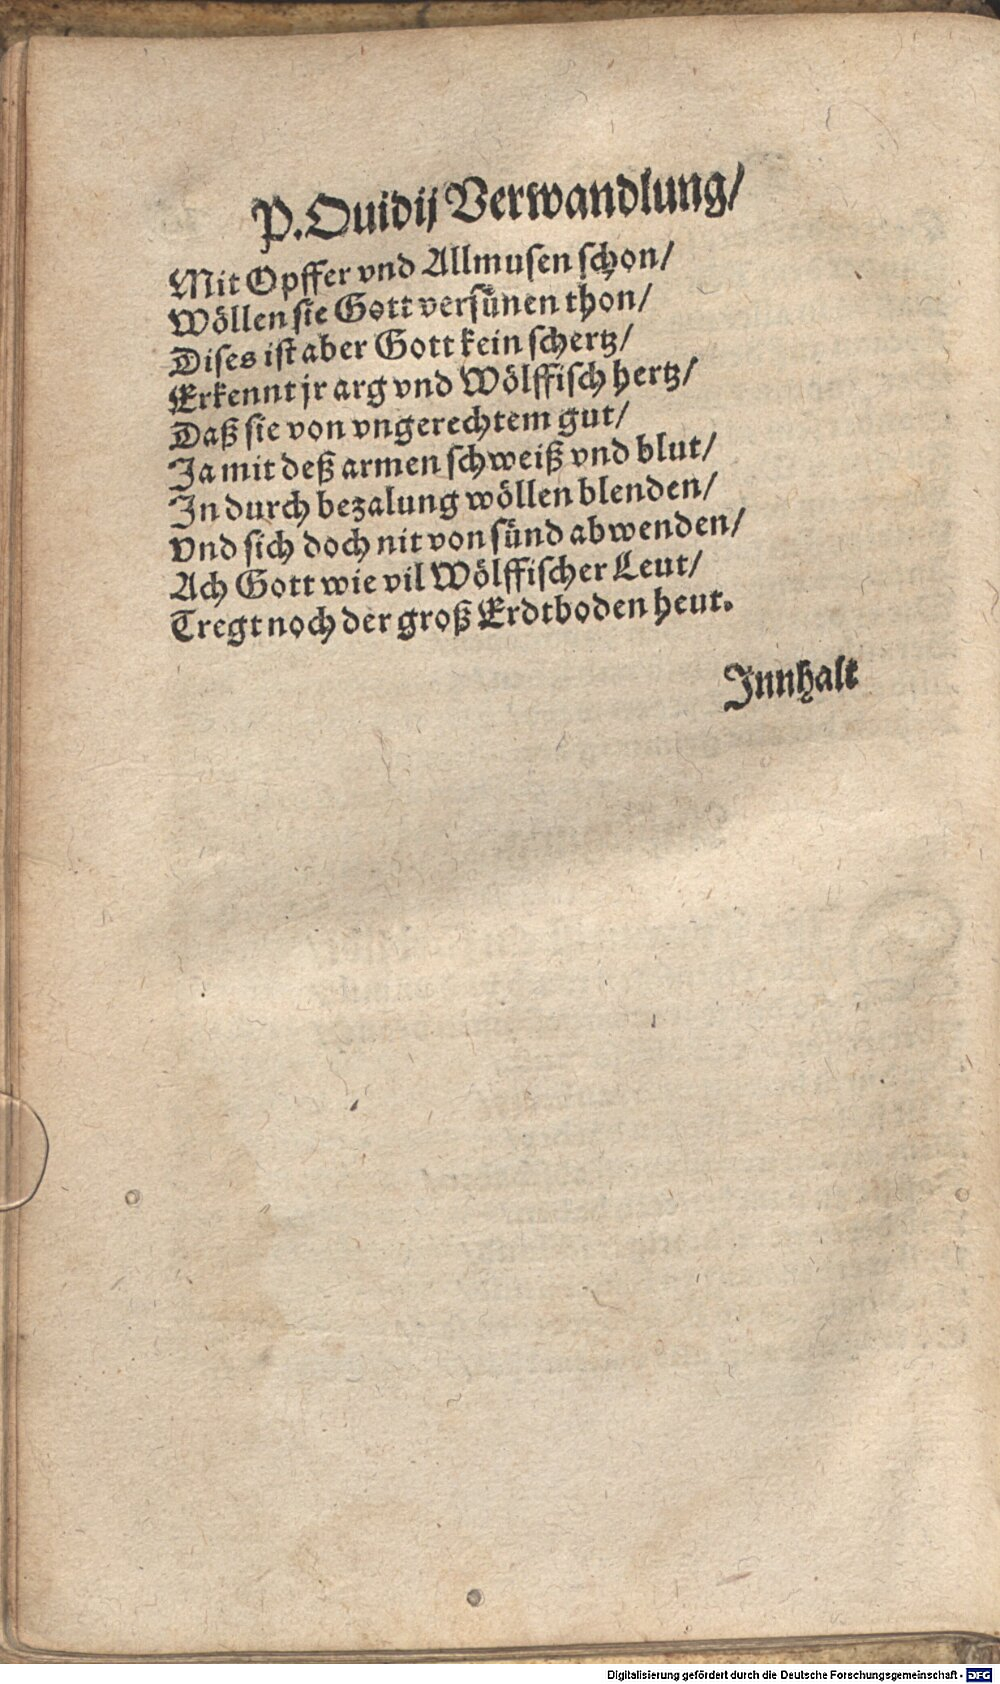 P. Ouidij Verwandlung/
Mit Opffer vnd Allmusen schon/
Wöllen sie Gott versünen thon/
Dises ist aber Gott kein schertz/
Erkennt jr arg vnd Wölffisch hertz/
Daß sie von vngerechtem gut/
Ja mit deß armen schweiß vnd blut/
In durch bezalung wöllen blenden/
Vnd sich doch nit von sünd abwenden/
Ach Gott wie vil Wölffischer Leut/
Tregt noch der groß Erdtboden heut.
Innhalt
Digitalisierung gefördert durch die Deutsche Forschungsgemeinschaft - DFG